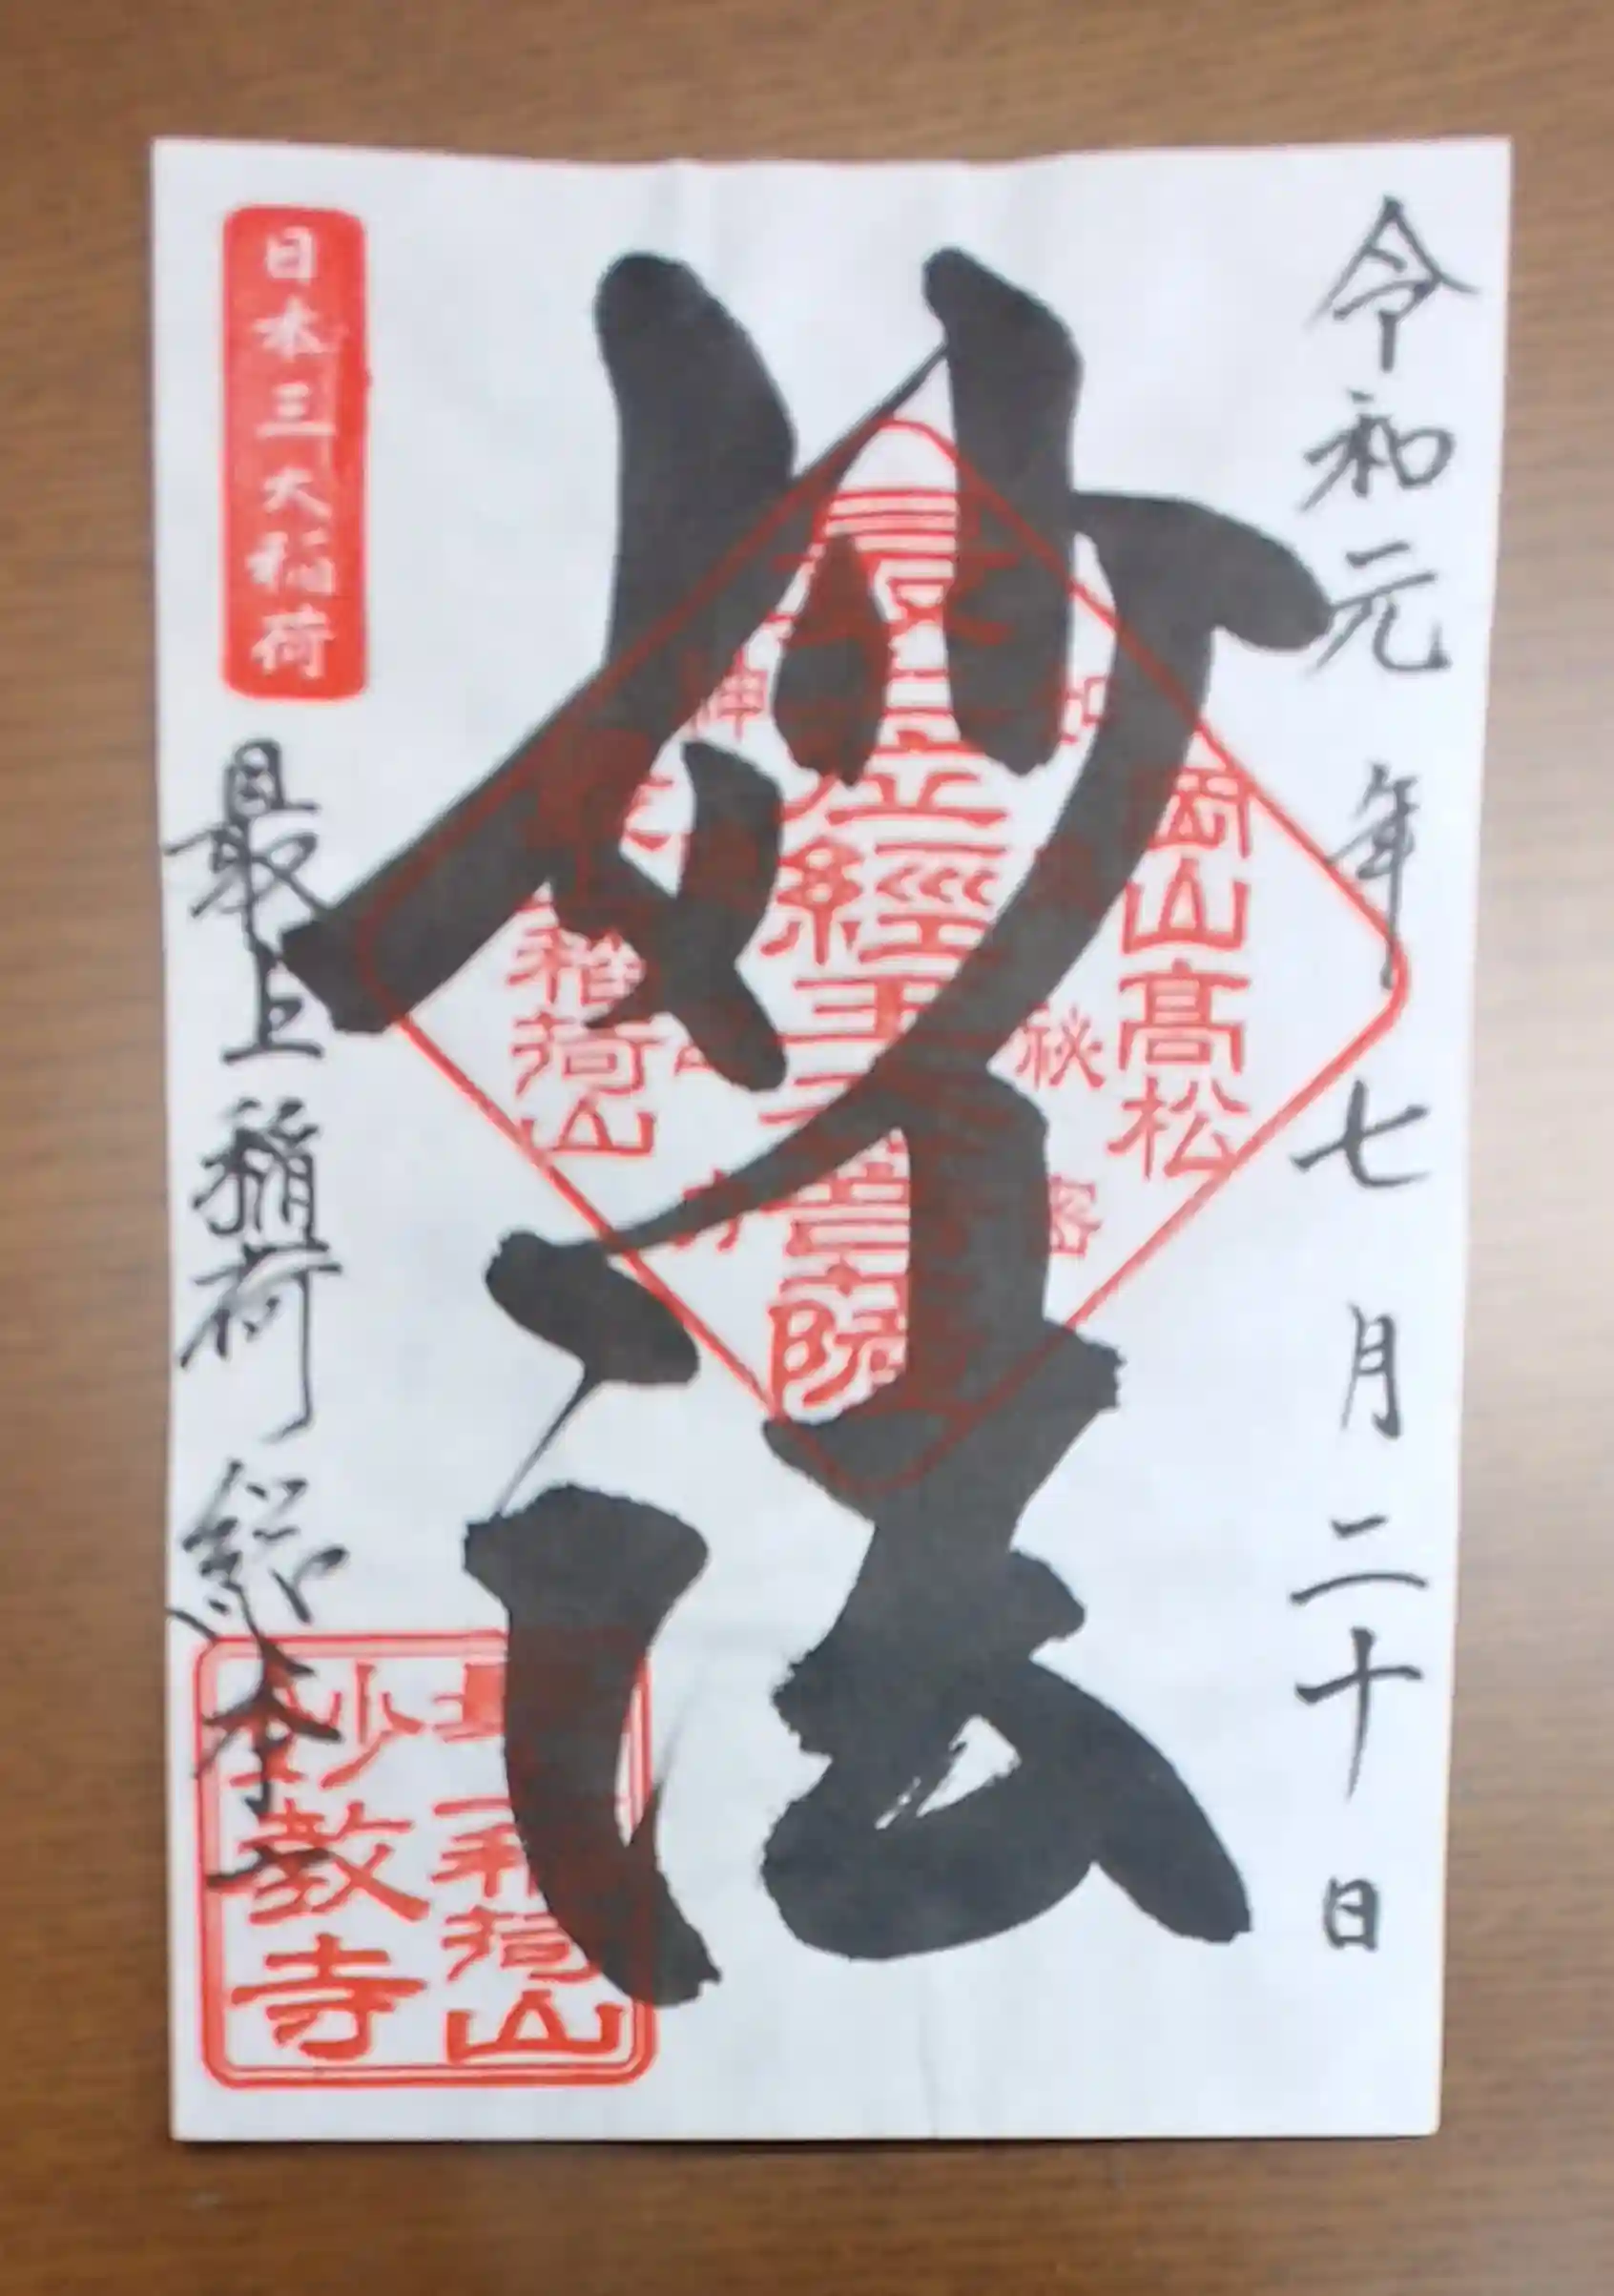 令和元年七月二十日
妙法
岡山髙松
最上位經王大菩薩
稲荷山
日本三大稲荷
最上稲荷総本山
稲荷山
妙教寺